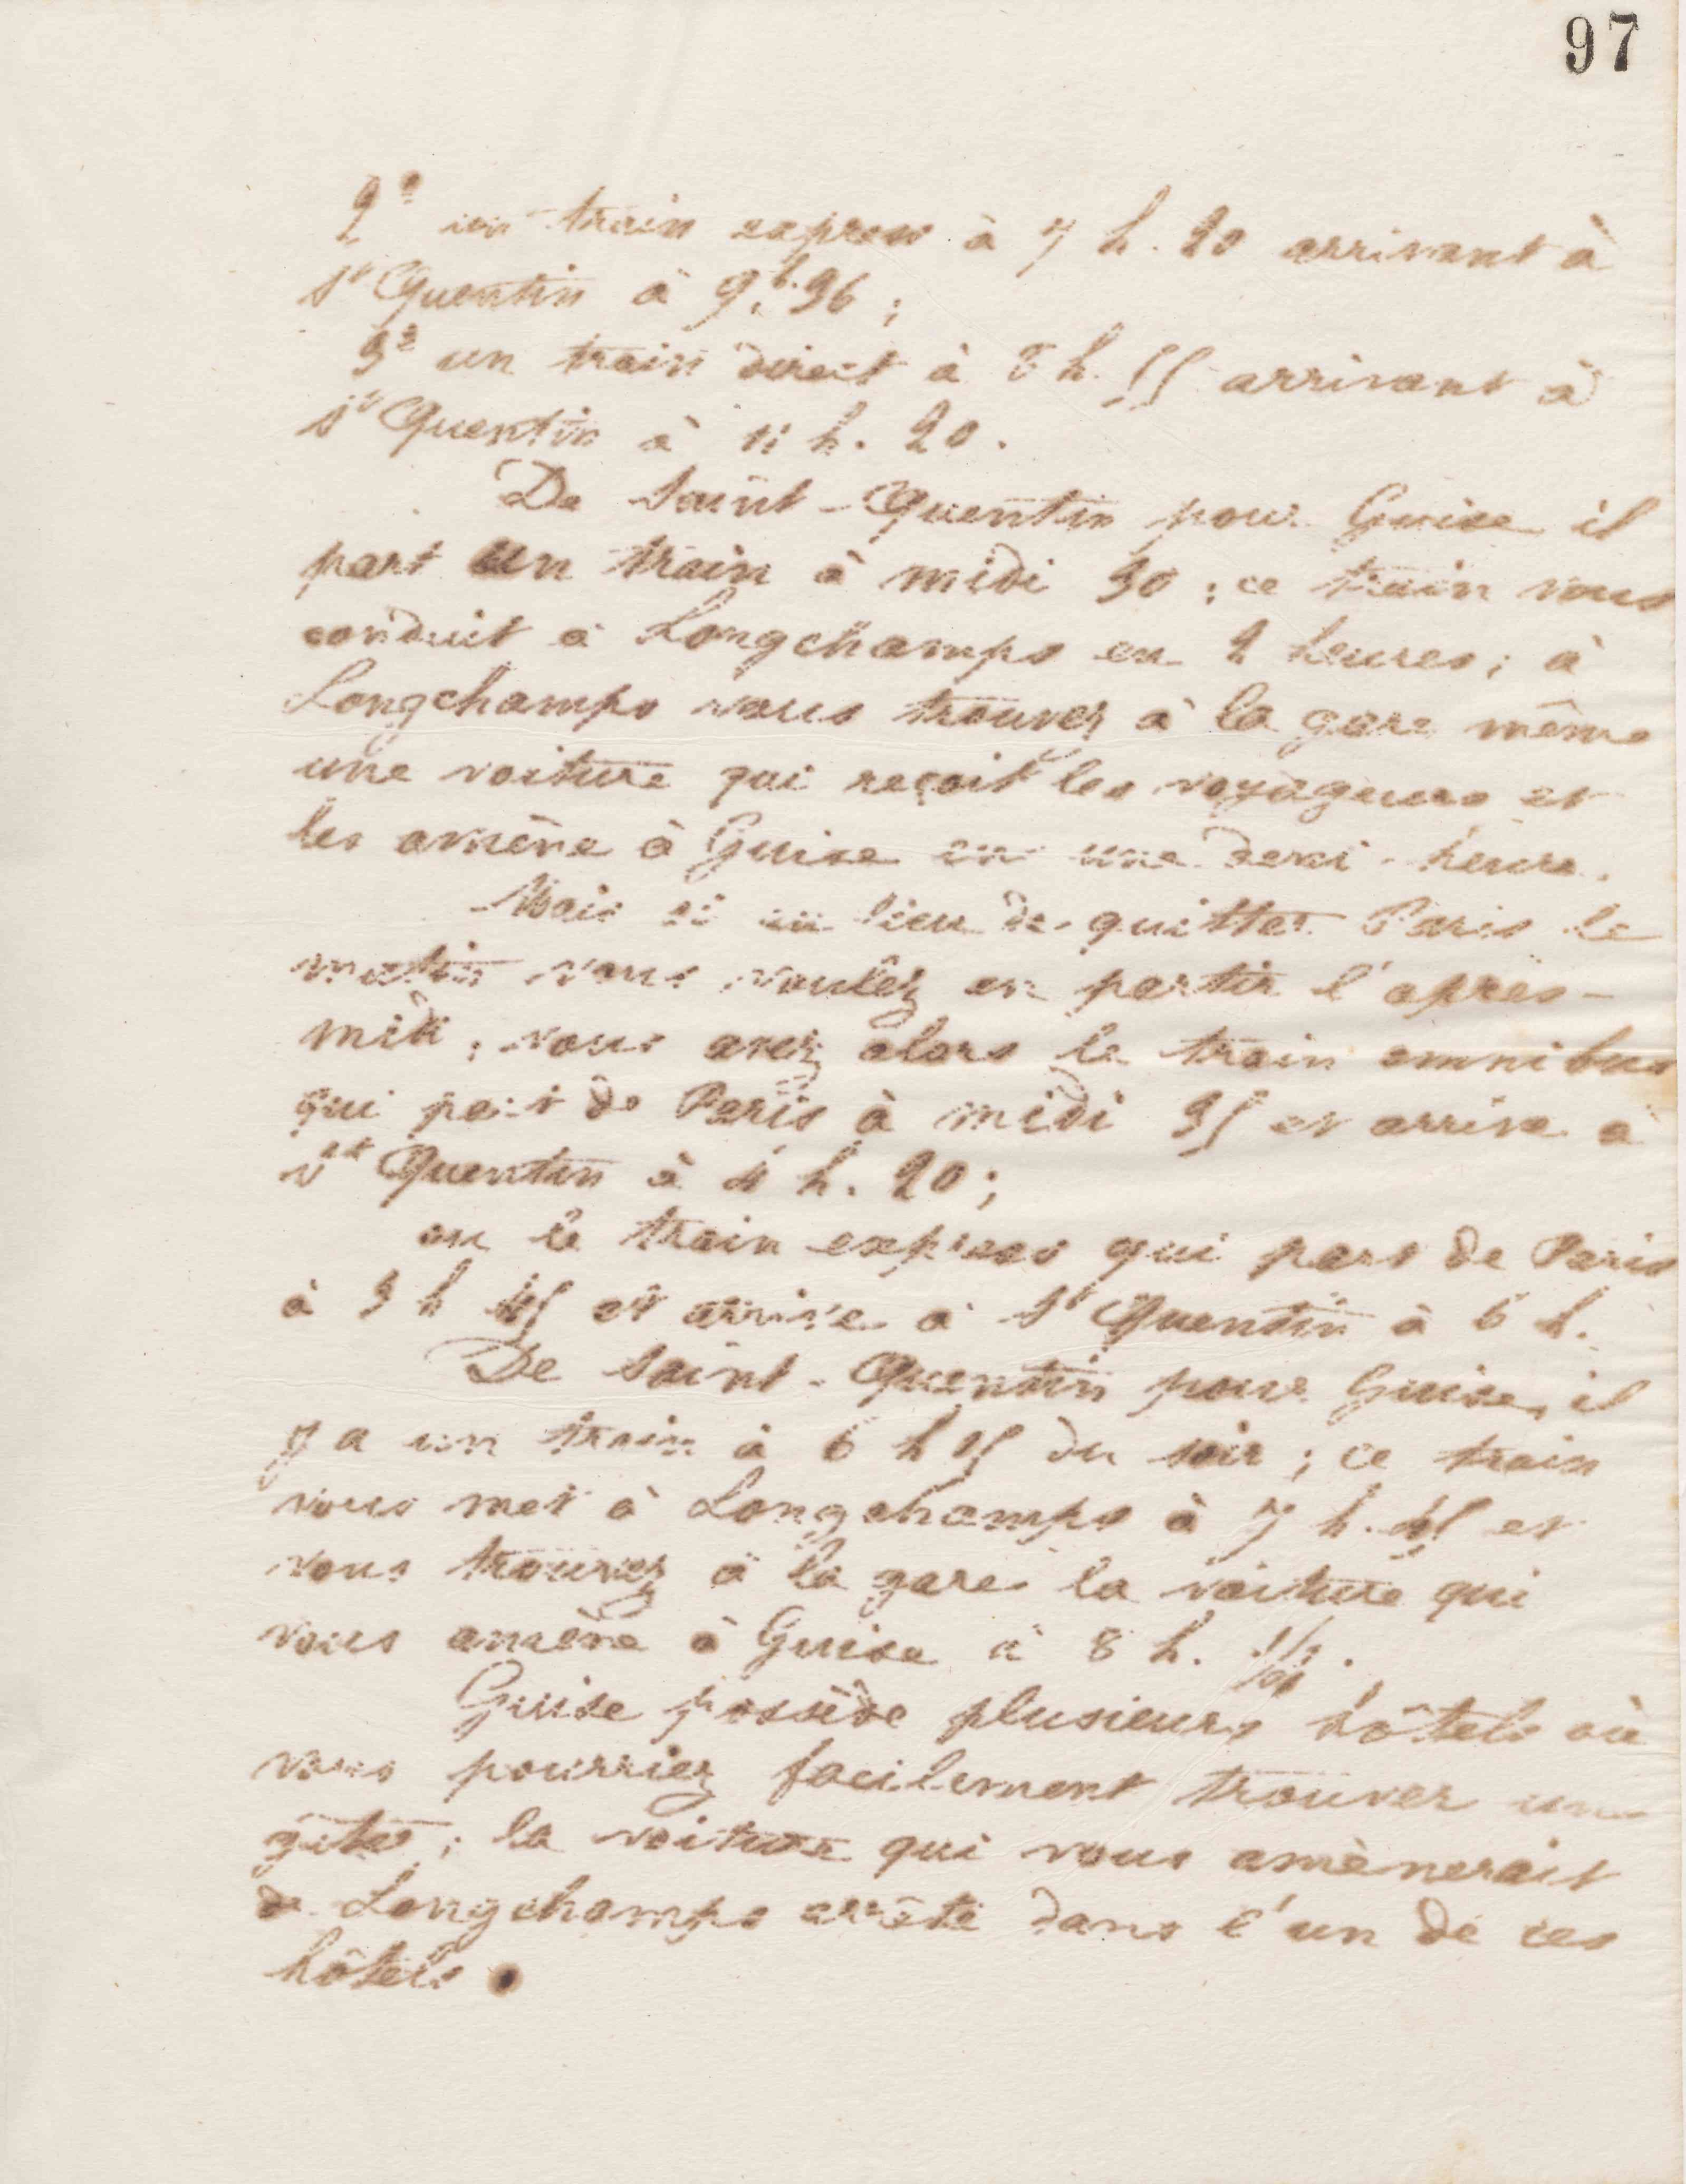 97
2° un train express à 7 h. 20 arrivant à
St Quentin à 9.h.36 ;
3° un train direct à 8 h. 55 arrivant à
St Quentin à 11 h. 20.
De Saint-Quentin pour Guise il
part un train à midi 30 ; ce train vous
conduit à Longchamps en 2 heures ; à
Longchamps vous trouvez à la gare même
une voiture qui reçoit les voyageurs et
les amène à Guise en une demi-heure.
Mais si au lieu de quitter Paris le
matin vous voulez en partir l'après-
midi, vous avez alors le train omnibus
qui part de Paris à midi 35 et arrive à
St Quentin à 4 h. 20 ;
ou le train express qui part de Paris
à 3 h 45 et arrive à St Quentin à 6 h.
De Saint-Quentin pour Guise, il
y a un train à 6 h 15 du soir ; ce train
vous met à Longchamps à 7 h. 45 et
vous trouvez à la gare la voiture qui
vous amène à Guise à 8 h. 1/2.
Guise possède plusieurs hôtels où
vous pourriez facilement trouver un
gîte ; la voiture qui vous amènerait
de Longchamps arrête dans l'un de ces
hôtels.